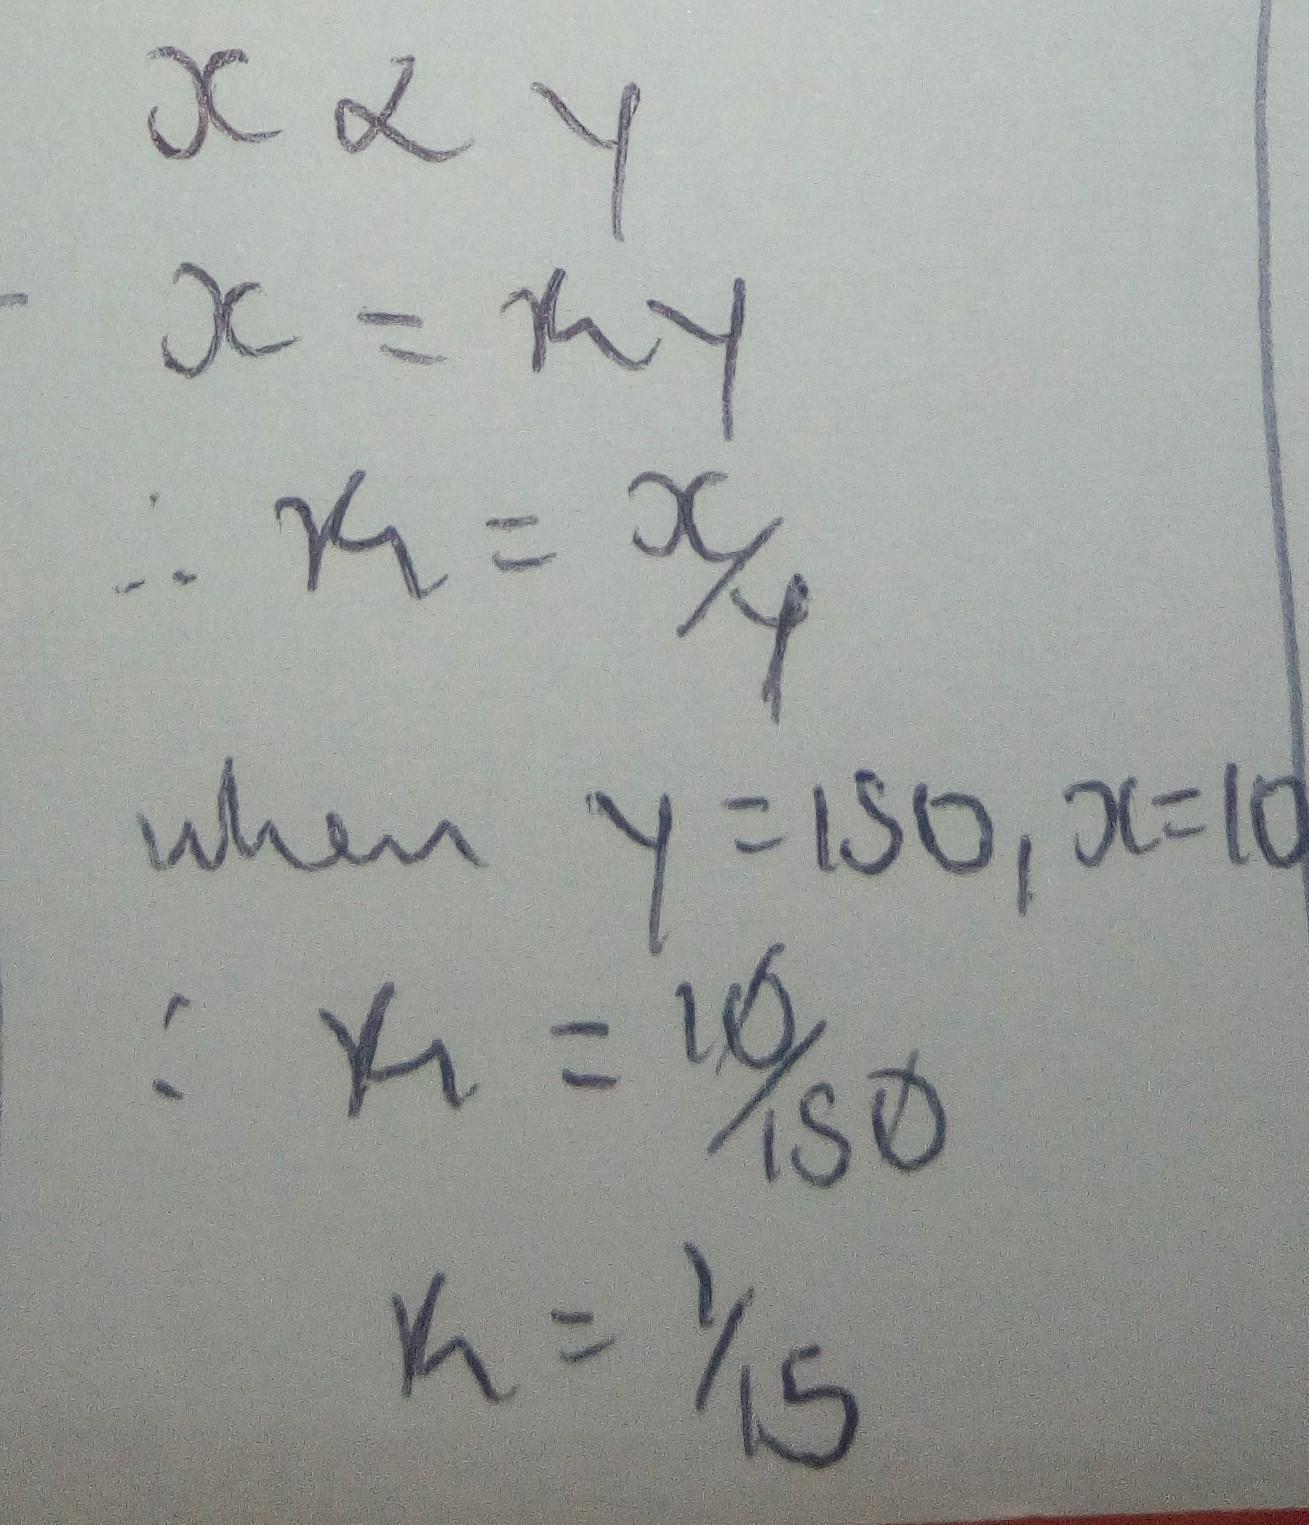 x ∝ y
x = ky
∴ k = x/y
when y = 150, x = 10
∴ k = 10/150
k = 1/15